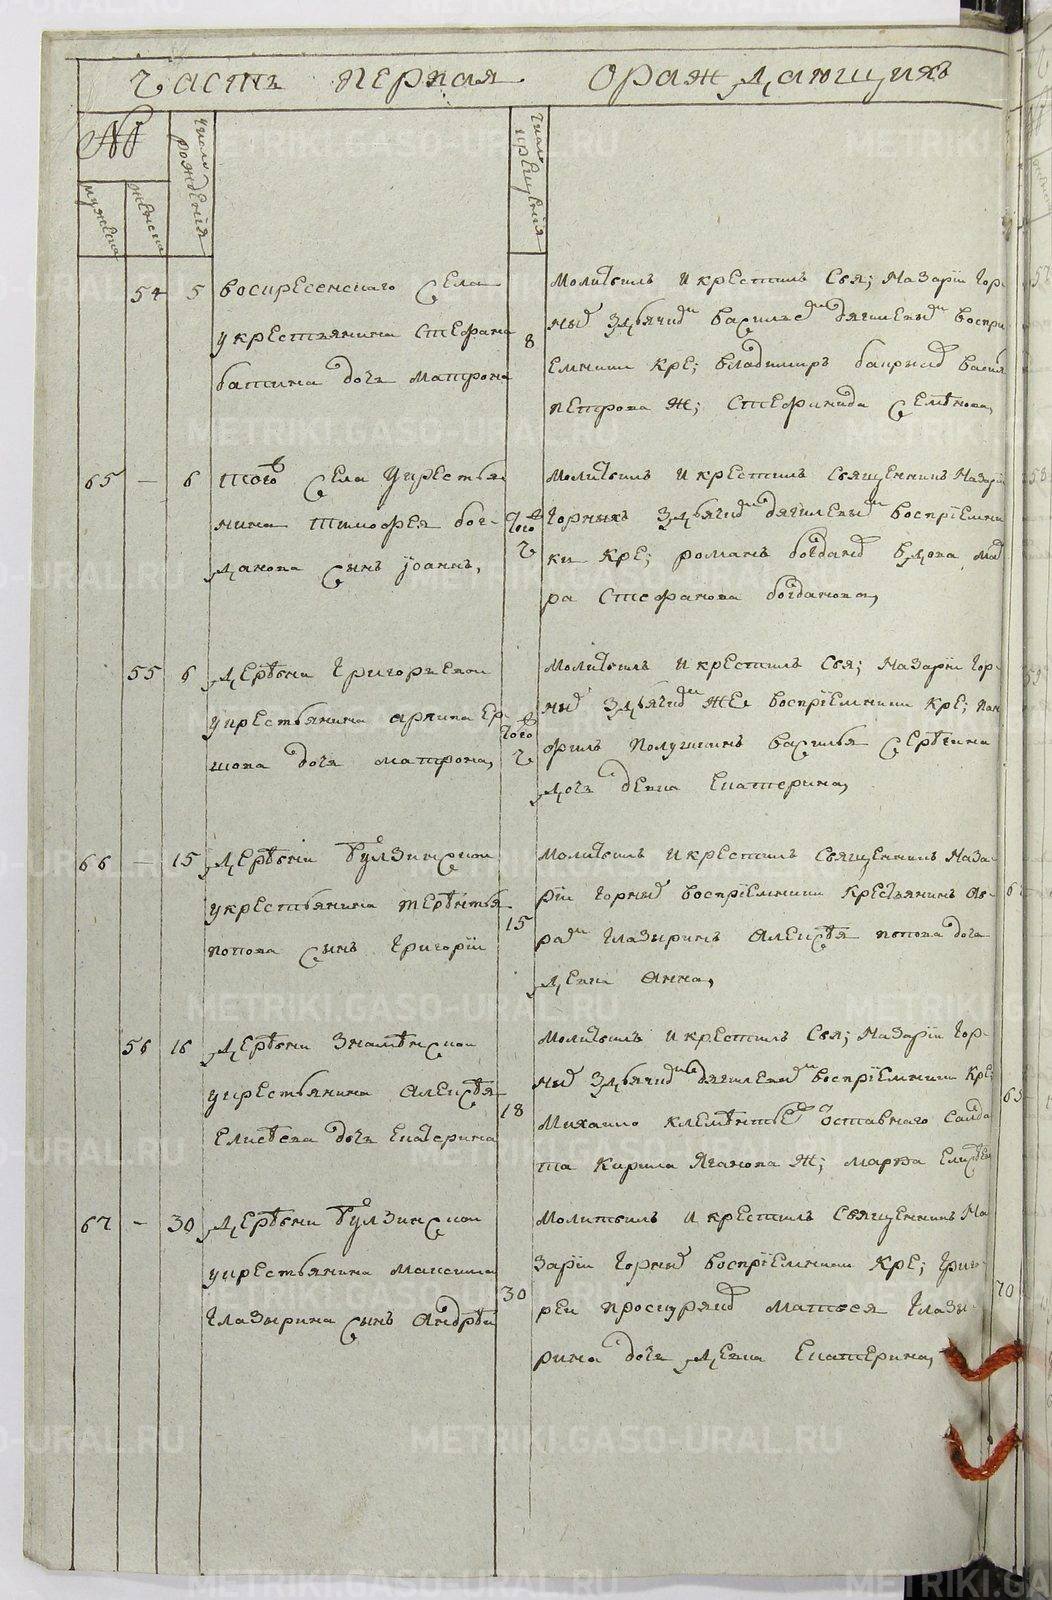 Часть первая ораждающихъ
№
мужеска
женска
число рожденїя
число крещенїя
54 5 воскресенскаго села
укрестьянина Стефана
батина дочь матрона
8
молитвилъ и крестилъ Свя; Назарїи Гор-
ный Здьячкомъ василье дягилевымъ воспри
емники кре; владимиръ
петрова ж; Стефанида Семѣнова,
65 — 6 того села укрестья
нина тимофея бог-
данова сынъ їоаннъ,
того ч
молитвилъ и крестилъ Священникъ Назарїи
Горныхъ Здьячкомъ дягилевымъ воспрїемни
ки кре; романъ богдановъ вдова
ра Стефанова богданова,
55 6 деревни Григорьевки
укрестьянина архипа Ер-
шова дочь матрона,
того ч
молитвилъ и крестилъ Свя; Назарїи Гор-
ный Здьячкомъ же воспрїемники кре; пан
филъ полушкинъ василья Сергѣина
дочь девка Екатерина,
66 — 15 деревни булзинской
укрестьянина терентья
попова сынъ Григорїи
15
молитвилъ и крестилъ Священникъ Наза-
рїи Горный воспрїемники крестьянинъ Ав-
рамъ Глазыринъ Алексѣя попова дочь
девка Анна,
56 16 деревни Знаменской
укрестьянина Алексѣя
Елисѣева дочь Екатерина
18
молитвилъ и крестилъ Свя; Назарїи Гор-
ный Здьячкомъ дягилевымъ воспрїемники кре
михаило клементьевъ отставнаго салда
та Кирила Яганова ж; марфа Елисѣева
67 — 30 деревни булзинской
укрестьянина максима
Глазырина сынъ Андрѣи
30
молитвилъ и крестилъ Священникъ На
зарїи Горный воспрїемники кре; Григо-
реи проскуряковъ матвея Глазы-
рина дочь девка Екатерина,